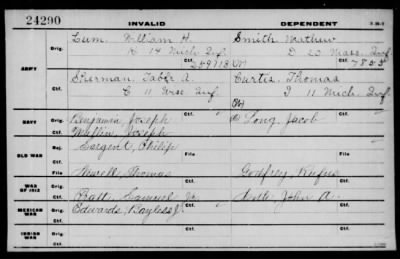 24290 INVALID DEPENDENT
Lum. William H. Smith Mathew
Orig. K 14 Mich Inf. D 23 Mass. Inf.
Ctf. 259713 Ctf. 7855
ARMY
Sherman, A. Curtis, Thomas
Orig. C 11 Inf. I 11 Mich. Inf.
Ctf. Ctf.
NAVY Orig. Benjamin, Joseph Long, Jacob
Ctf. Mullin, Joseph Ctf.
OLD WAR Rej. Sargent, Philip
File Newell Thomas File Godfrey, Rufus
WAR OF 1812 Orig. Ctf.
Ctf. Ball, Samuel Jr. John A.
MEXICAN WAR Orig. Edwards, Bayless J.
Ctf. Ctf.
INDIAN WAR Orig.
Ctf. Ctf.